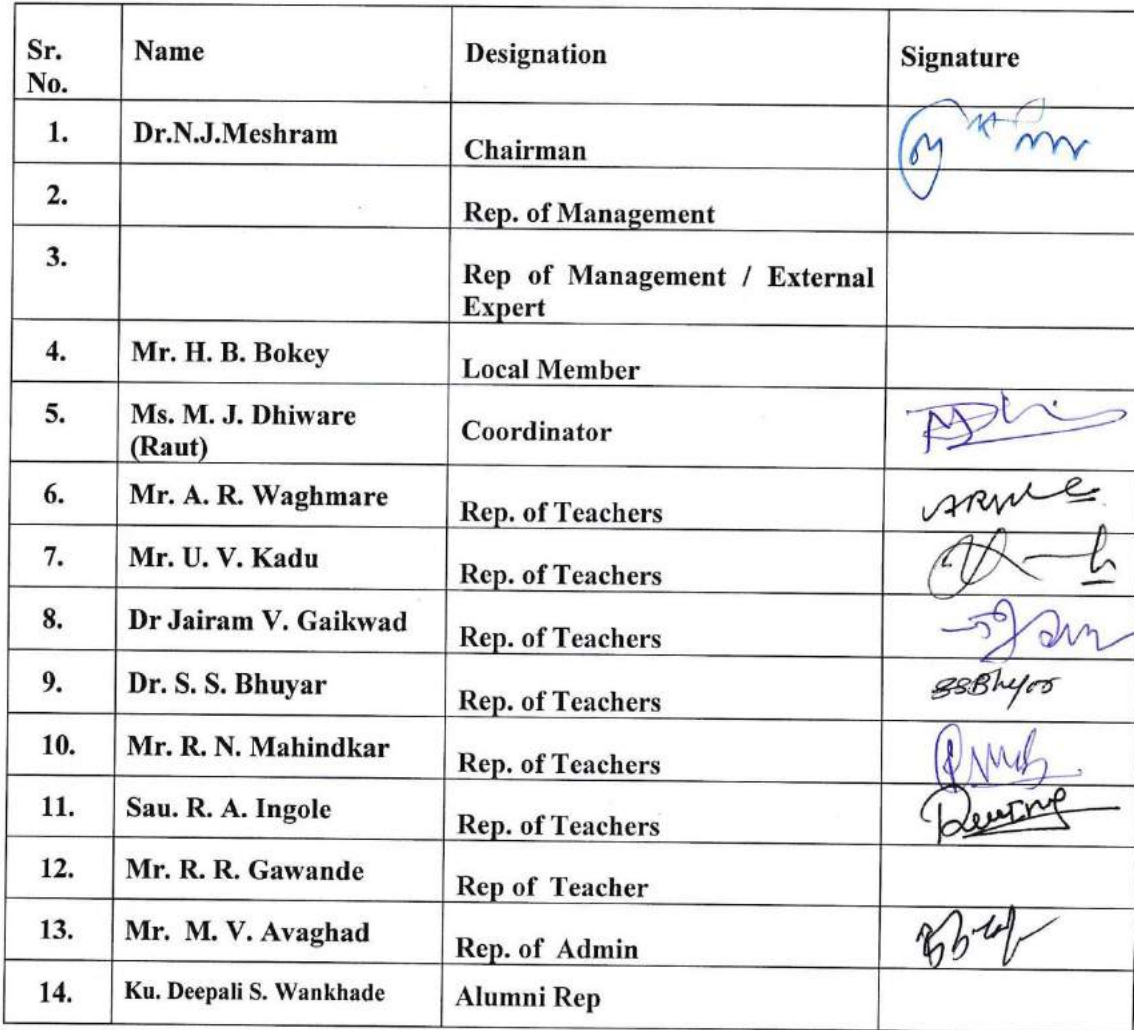 Sr. No. Name Designation Signature
1. Dr.N.J.Meshram Chairman
2. Rep. of Management
3. Rep of Management / External
Expert
4. Mr. H. B. Bokey Local Member
5. Ms. M. J. Dhiware
(Raut) Coordinator
6. Mr. A. R. Waghmare Rep. of Teachers
7. Mr. U. V. Kadu Rep. of Teachers
8. Dr Jairam V. Gaikwad Rep. of Teachers
9. Dr. S. S. Bhuyar Rep. of Teachers
10. Mr. R. N. Mahindkar Rep. of Teachers
11. Sau. R. A. Ingole Rep. of Teachers
12. Mr. R. R. Gawande Rep of Teacher
13. Mr. M. V. Avaghad Rep. of Admin
14. Ku. Deepali S. Wankhade Alumni Rep